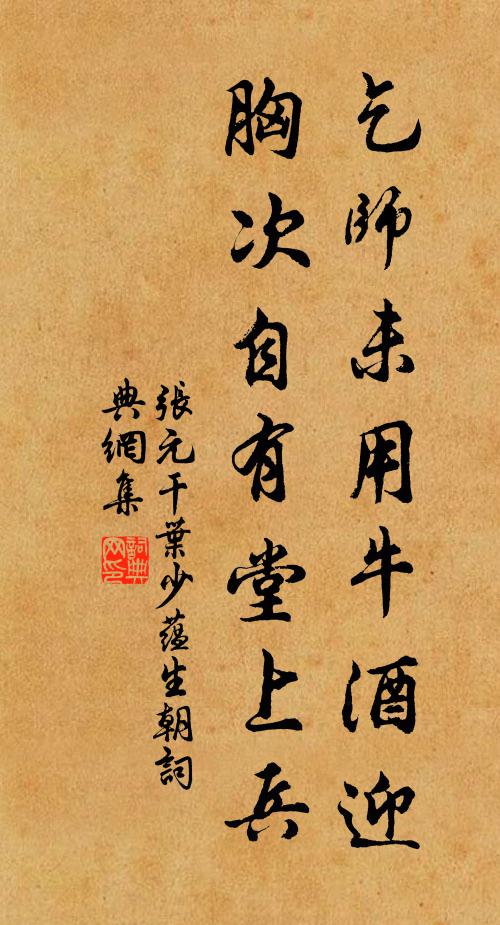 乞師未用牛酒迎
胸次自有堂上兵
張元干葉少蕴生朝詞
典網集
詞典
网印